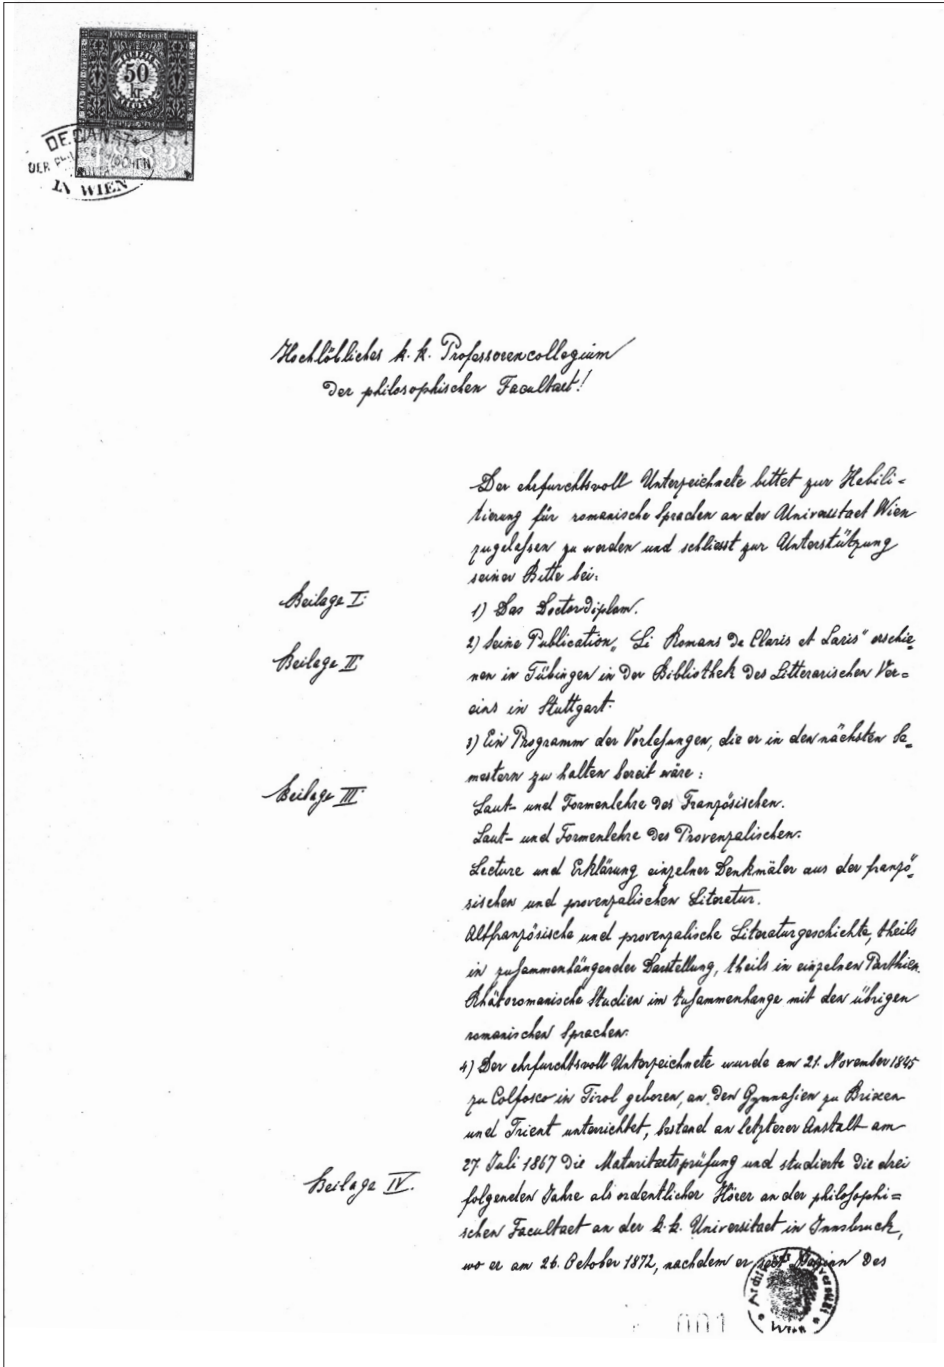 50
kr
DECANAT
DER PHILOSOPHISCHEN
IN WIEN
1883
Hochlöbliches k. k. Professorencollegium
der philosophischen Facultaet!
Der ehrfurchtsvoll Unterzeichnete bittet zur Habili=
tierung für romanische Sprachen an der Universitaet Wien
zugelassen zu werden und schliesst zur Unterstützung
seiner Bitte bei:
Beilage I:
1) Das Doctordiplom.
Beilage II:
2) Seine Publication „Li Romans de Claris et Laris" erschie=
nen in Tübingen in der Bibliothek des Litterarischen Ver=
eins in Stuttgart.
3) Ein Programm der Vorlesungen, die er in den nächsten Se=
mestern zu halten bereit wäre:
Beilage III:
Laut- und Formenlehre des Französischen.
Laut- und Formenlehre des Provenzalischen.
Lecture und Erklärung einzelner Denkmäler aus der franzö=
sischen und provenzalischen Literatur.
Altfranzösische und provenzalische Literaturgeschichte, theils
in zusammenhängender Darstellung, theils in einzelnen Parthien.
Rhätoromanische Studien im Zusammenhange mit den übrigen
romanischen Sprachen.
4) Der ehrfurchtsvoll Unterzeichnete wurde am 21. November 1845
zu Colfosco in Tirol geboren, an den Gymnasien zu Brixen
und Trient unterrichtet, bestand an letzterer Anstalt am
Beilage IV.
27. Juli 1867 die Maturitaetsprüfung und studierte die drei
folgenden Jahre als ordentlicher Hörer an der philosophi=
schen Facultaet an der k. k. Universitaet in Innsbruck,
wo er am 26. October 1872, nachdem er seit Beginn des
Archiv der Universität
Wien
001